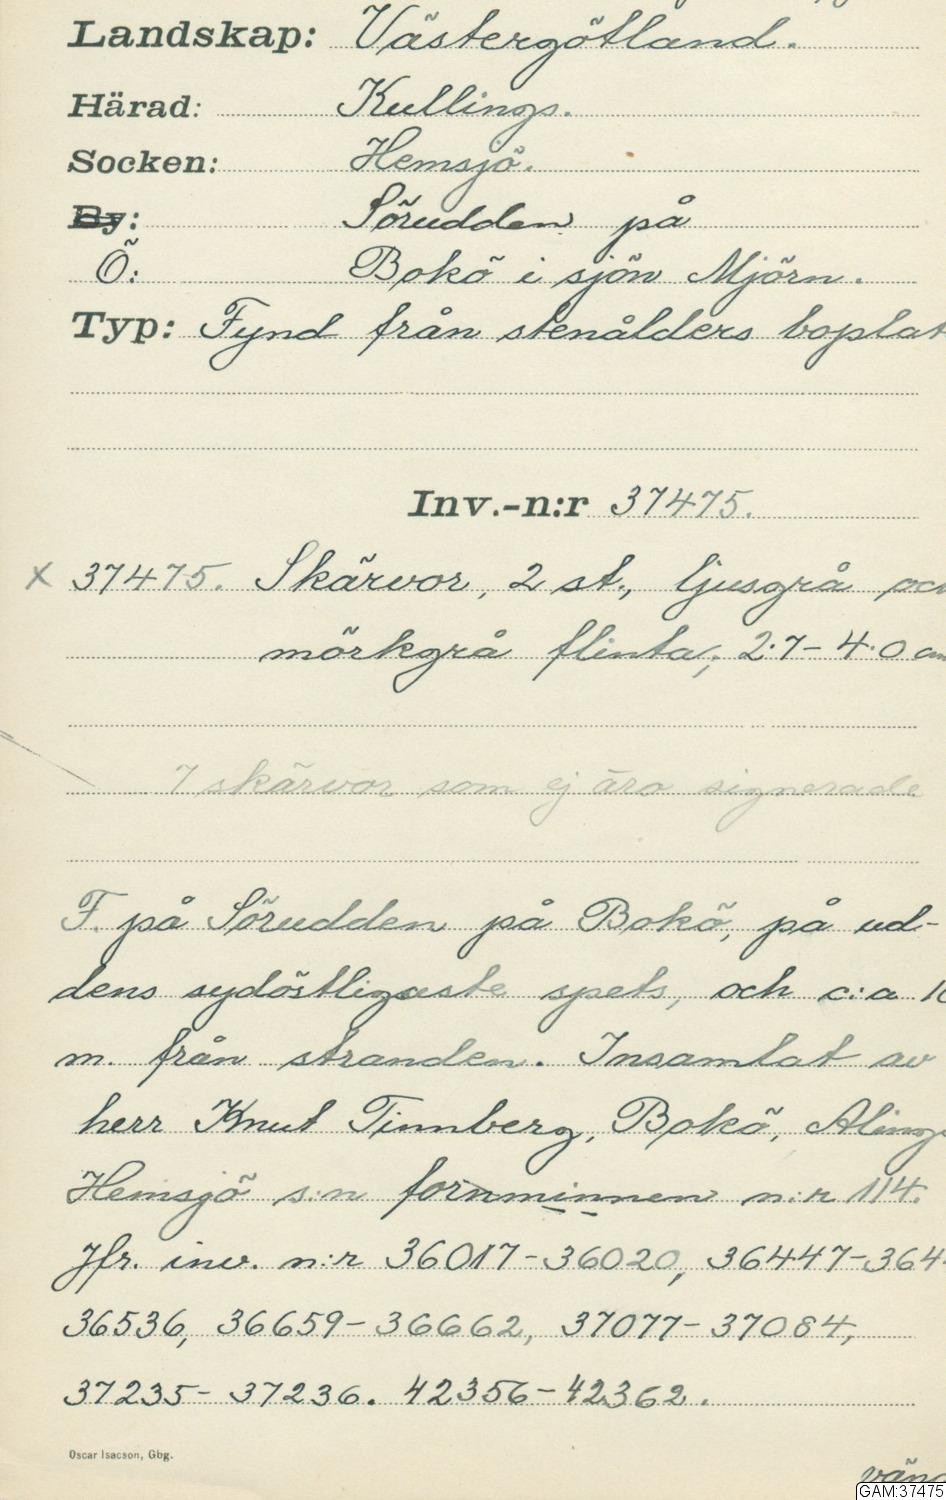 Landskap: Västergötland.
Härad: Kullings.
Socken: Hemsjö.
By: Sörudden på
Ö: Bokö i sjön Mjörn.
Typ: Fynd från stenålders boplat
Inv.-n:r 37475.
x 37475. Skärvor, 2 st., ljusgrå oc
mörkgrå flinta; 2.7-4.0 cm
7 skärvor som ej äro signerade
F. på Sörudden på Bokö, på ud-
dens sydöstligaste spets, och c:a 10
m. från stranden. Insamlat av
herr Knut Tinnberg, Bokö, Aling
Hemsjö s:n fornminnen n:r 114.
Jfr. inv. n:r 36017-36020, 36447-364
36536, 36659-36662, 37077-37084,
37235-37236. 42356-42362.
Oscar Isacson, Gbg.
vänd
GAM:37475